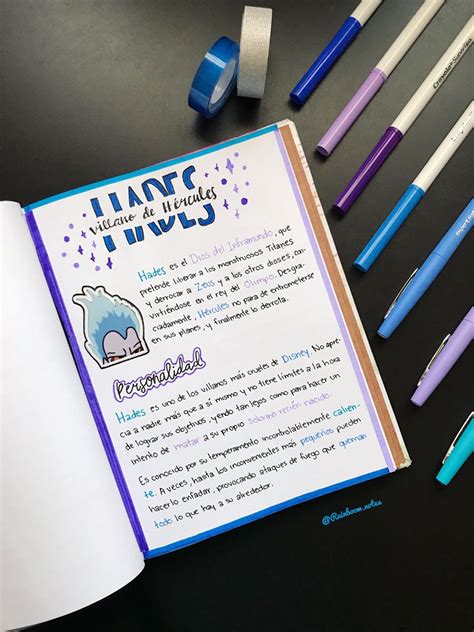 HADES
villano de Hércules
Hades es el Dios del Inframundo, que
pretende liberar a los monstruosos Titanes
y derrocar a Zeus y a los otros dioses, con-
virtiéndose en el rey del Olimpo. Desgra-
ciadamente, Hércules no para de entrometerse
en sus planes, y finalmente lo derrota.
Personalidad
Hades es uno de los villanos más crueles de Disney. No apre-
cia a nadie más que a sí mismo y no tiene límites a la hora
de lograr sus objetivos, yendo tan lejos como para hacer un
intento de matar a su propio sobrino recién nacido.
Es conocido por su temperamento incontrolablemente calien-
te. A veces, hasta los inconvenientes más pequeños pueden
hacerlo enfadar, provocando ataques de fuego que queman
todo lo que hay a su alrededor.
@Rainboow_notes